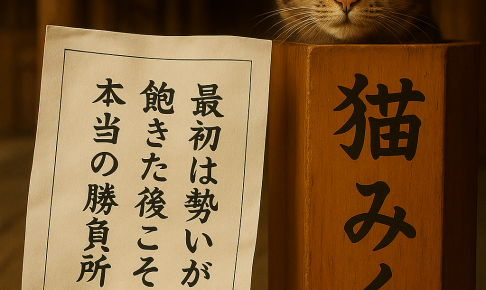 猫み
最初は勢いが
飽きた後こそ
本当の勝負所